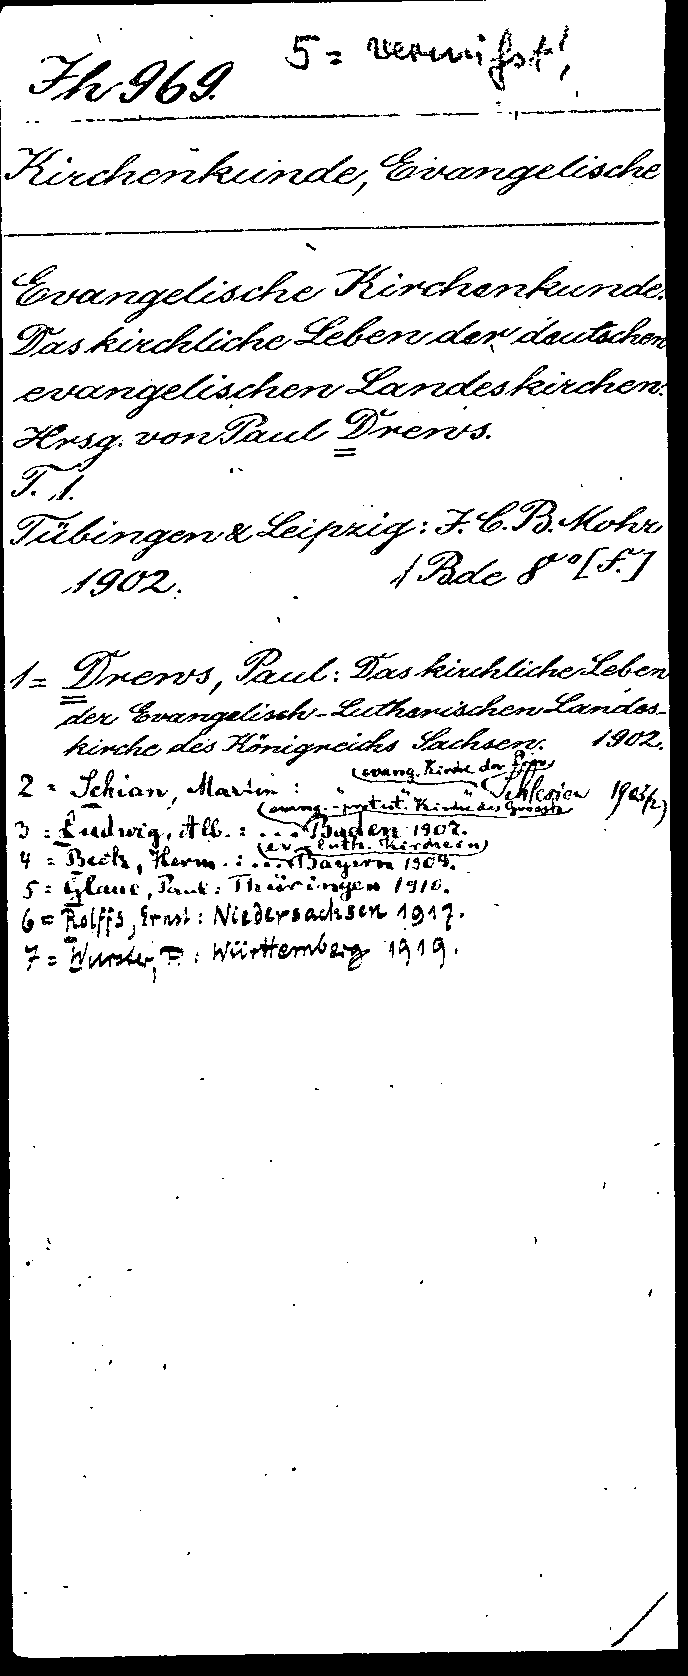 5 = vermißt!
Th 969.
Kirchenkunde, Evangelische
Evangelische Kirchenkunde.
Das kirchliche Leben der deutschen
evangelischen Landeskirchen.
Hrsg. von Paul Drews.
T. 1.
Tübingen & Leipzig: J. C. B. Mohr
1902. 1 Bde 8° [f.]
1 = Drews, Paul: Das kirchliche Leben
der Evangelisch-Lutherischen Landes-
kirche des Königreichs Sachsen. 1902.
(evang. Kirche der
2 = Schian, Martin: " " " Schlesien
(evang.-protest. Kirche des Grossh.
3 = Ludwig, Alb.: ... Baden 1907.
(ev.-luth. Kirche in)
4 = Beck, Herm.: ... Bayern 1909.
5 = Glaue, Paul: Thüringen 1910.
6 = Rolffs, Ernst: Niedersachsen 1917.
7 = Wurster, P.: Württemberg 1919.